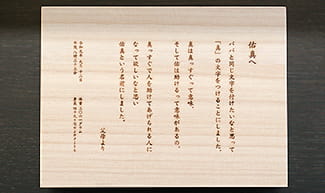 佑真へ
パパと同じ文字を付けたいなと思って
「真」の文字をつけることにしました。
真は真っすぐって意味、
そして佑は助けるって意味があるの。
真っすぐで人を助けてあげられる人に
なって欲しいなと思い
佑真という名前にしました。
父母より